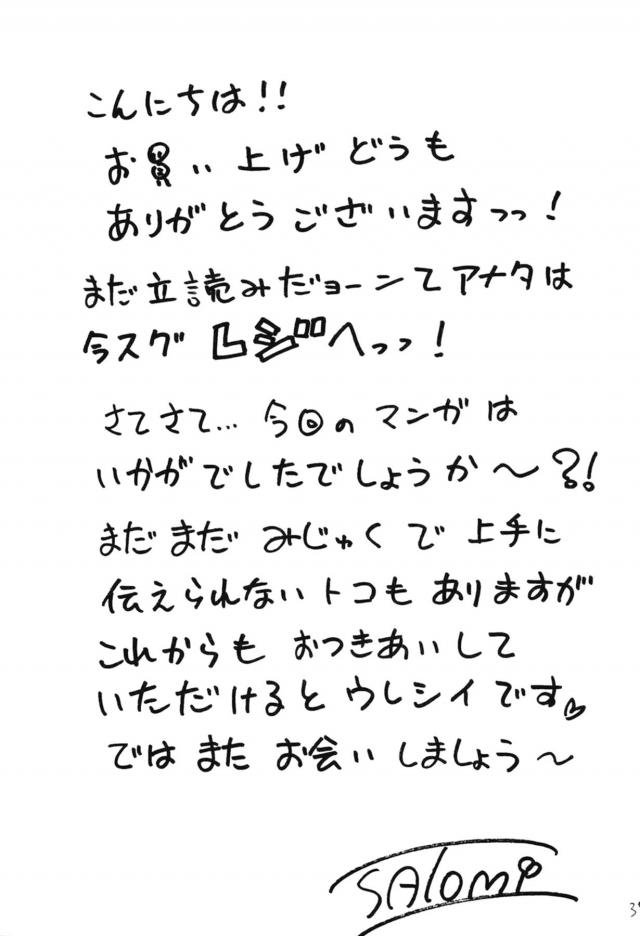 こんにちは!!
お買い上げ どうも
ありがとう ございますっっ!
まだ立読みだョーンてアナタは
今スグ レジへっっ!
さてさて… 今回の マンガは
いかがでしたでしょうか〜?!
まだまだ みじゅくで 上手に
伝えられないトコも ありますが
これからも おつきあいして
いただけると ウレシイです♡
では また お会い しましょう〜
SAlomi